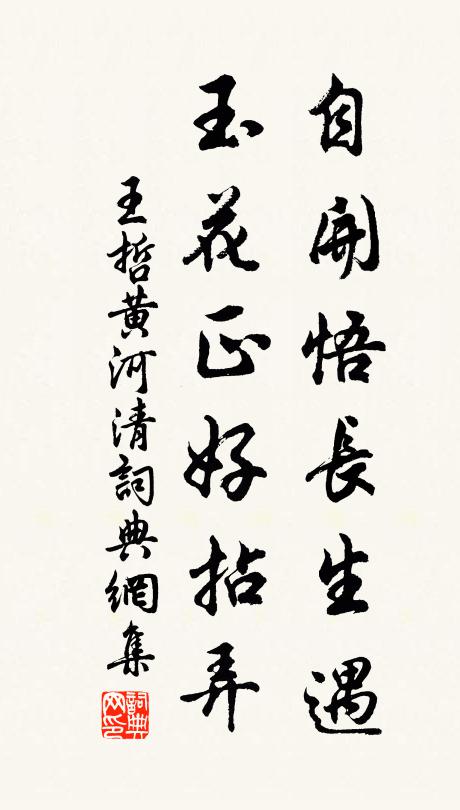 自開悟長生遇
玉花正好拈弄
王哲黃河清詞典網集
詞典網印